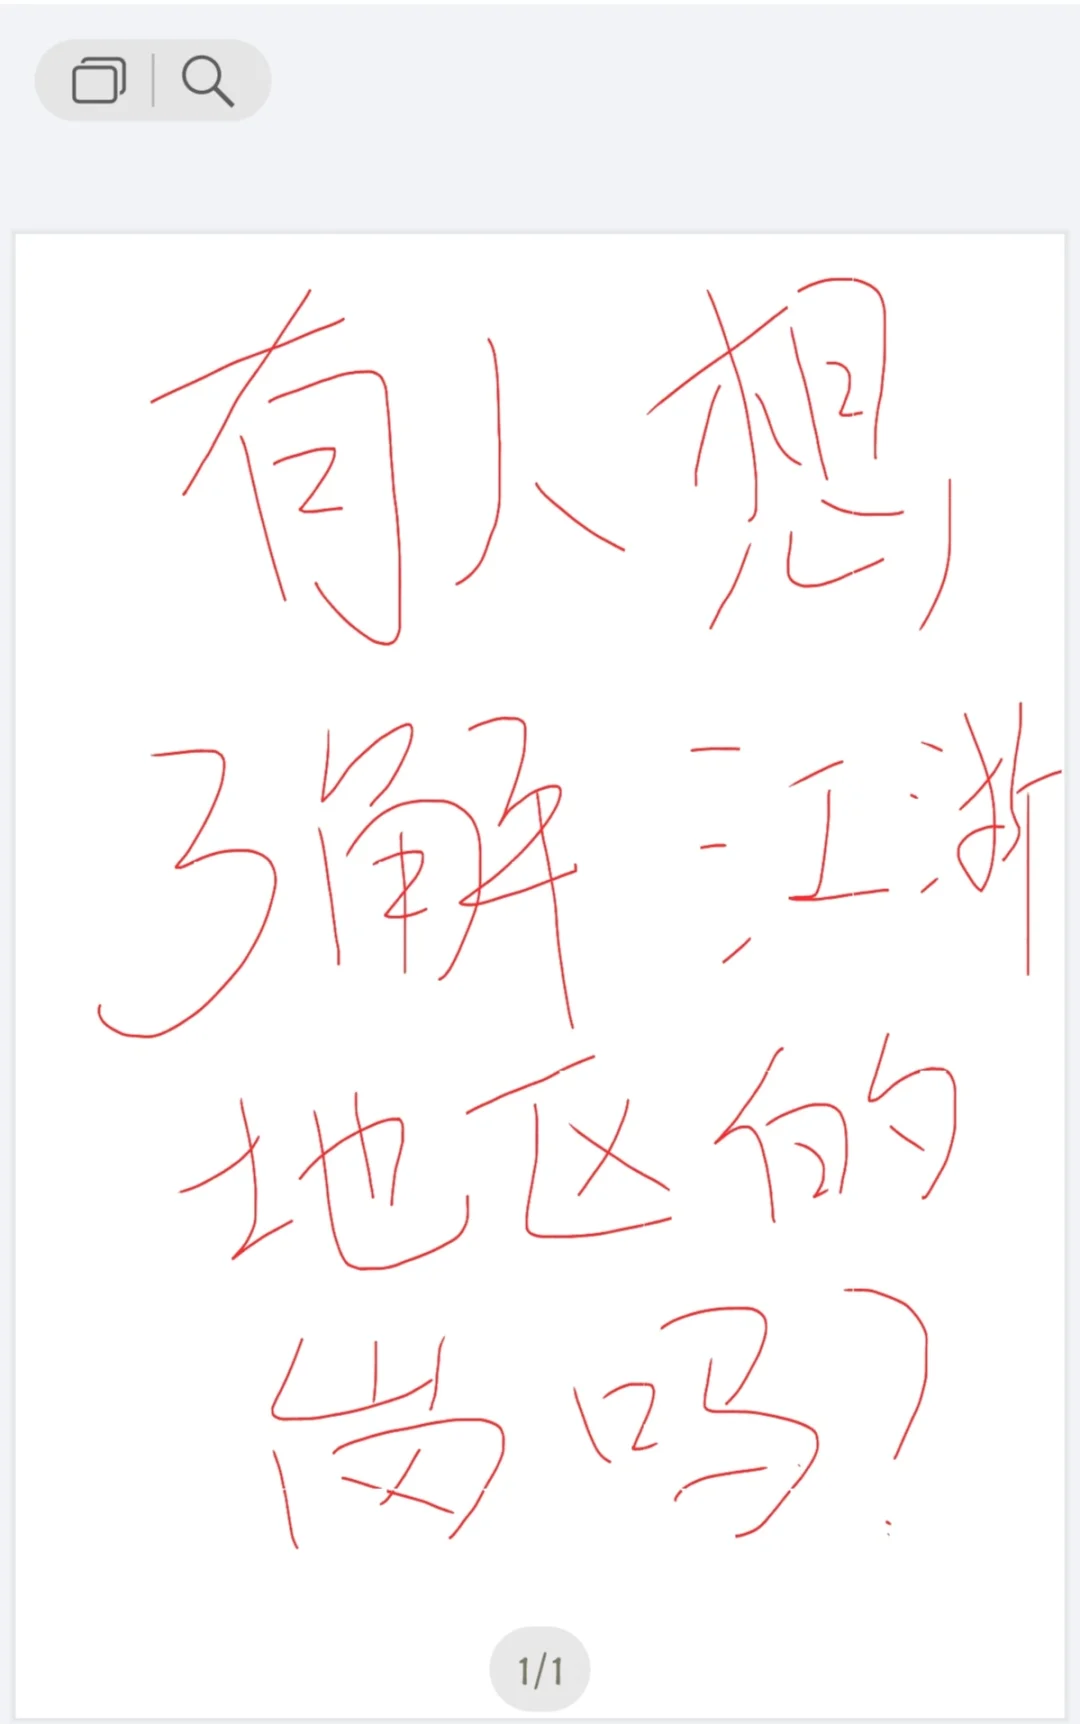 有人想
了解江浙
地区的
岗吗？
1/1